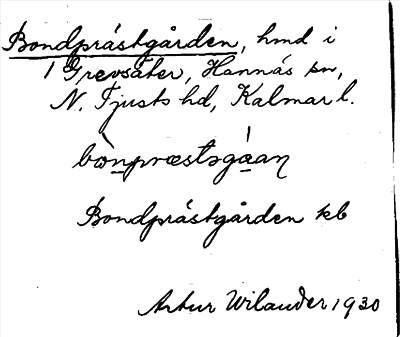 Bondprästgården, hmd i
1 Grevsäter, Hannäs sn,
N. Tjusts hd, Kalmar l.
bònpræstsgáan
Bondprästgården kb
Artur Wilander 1930